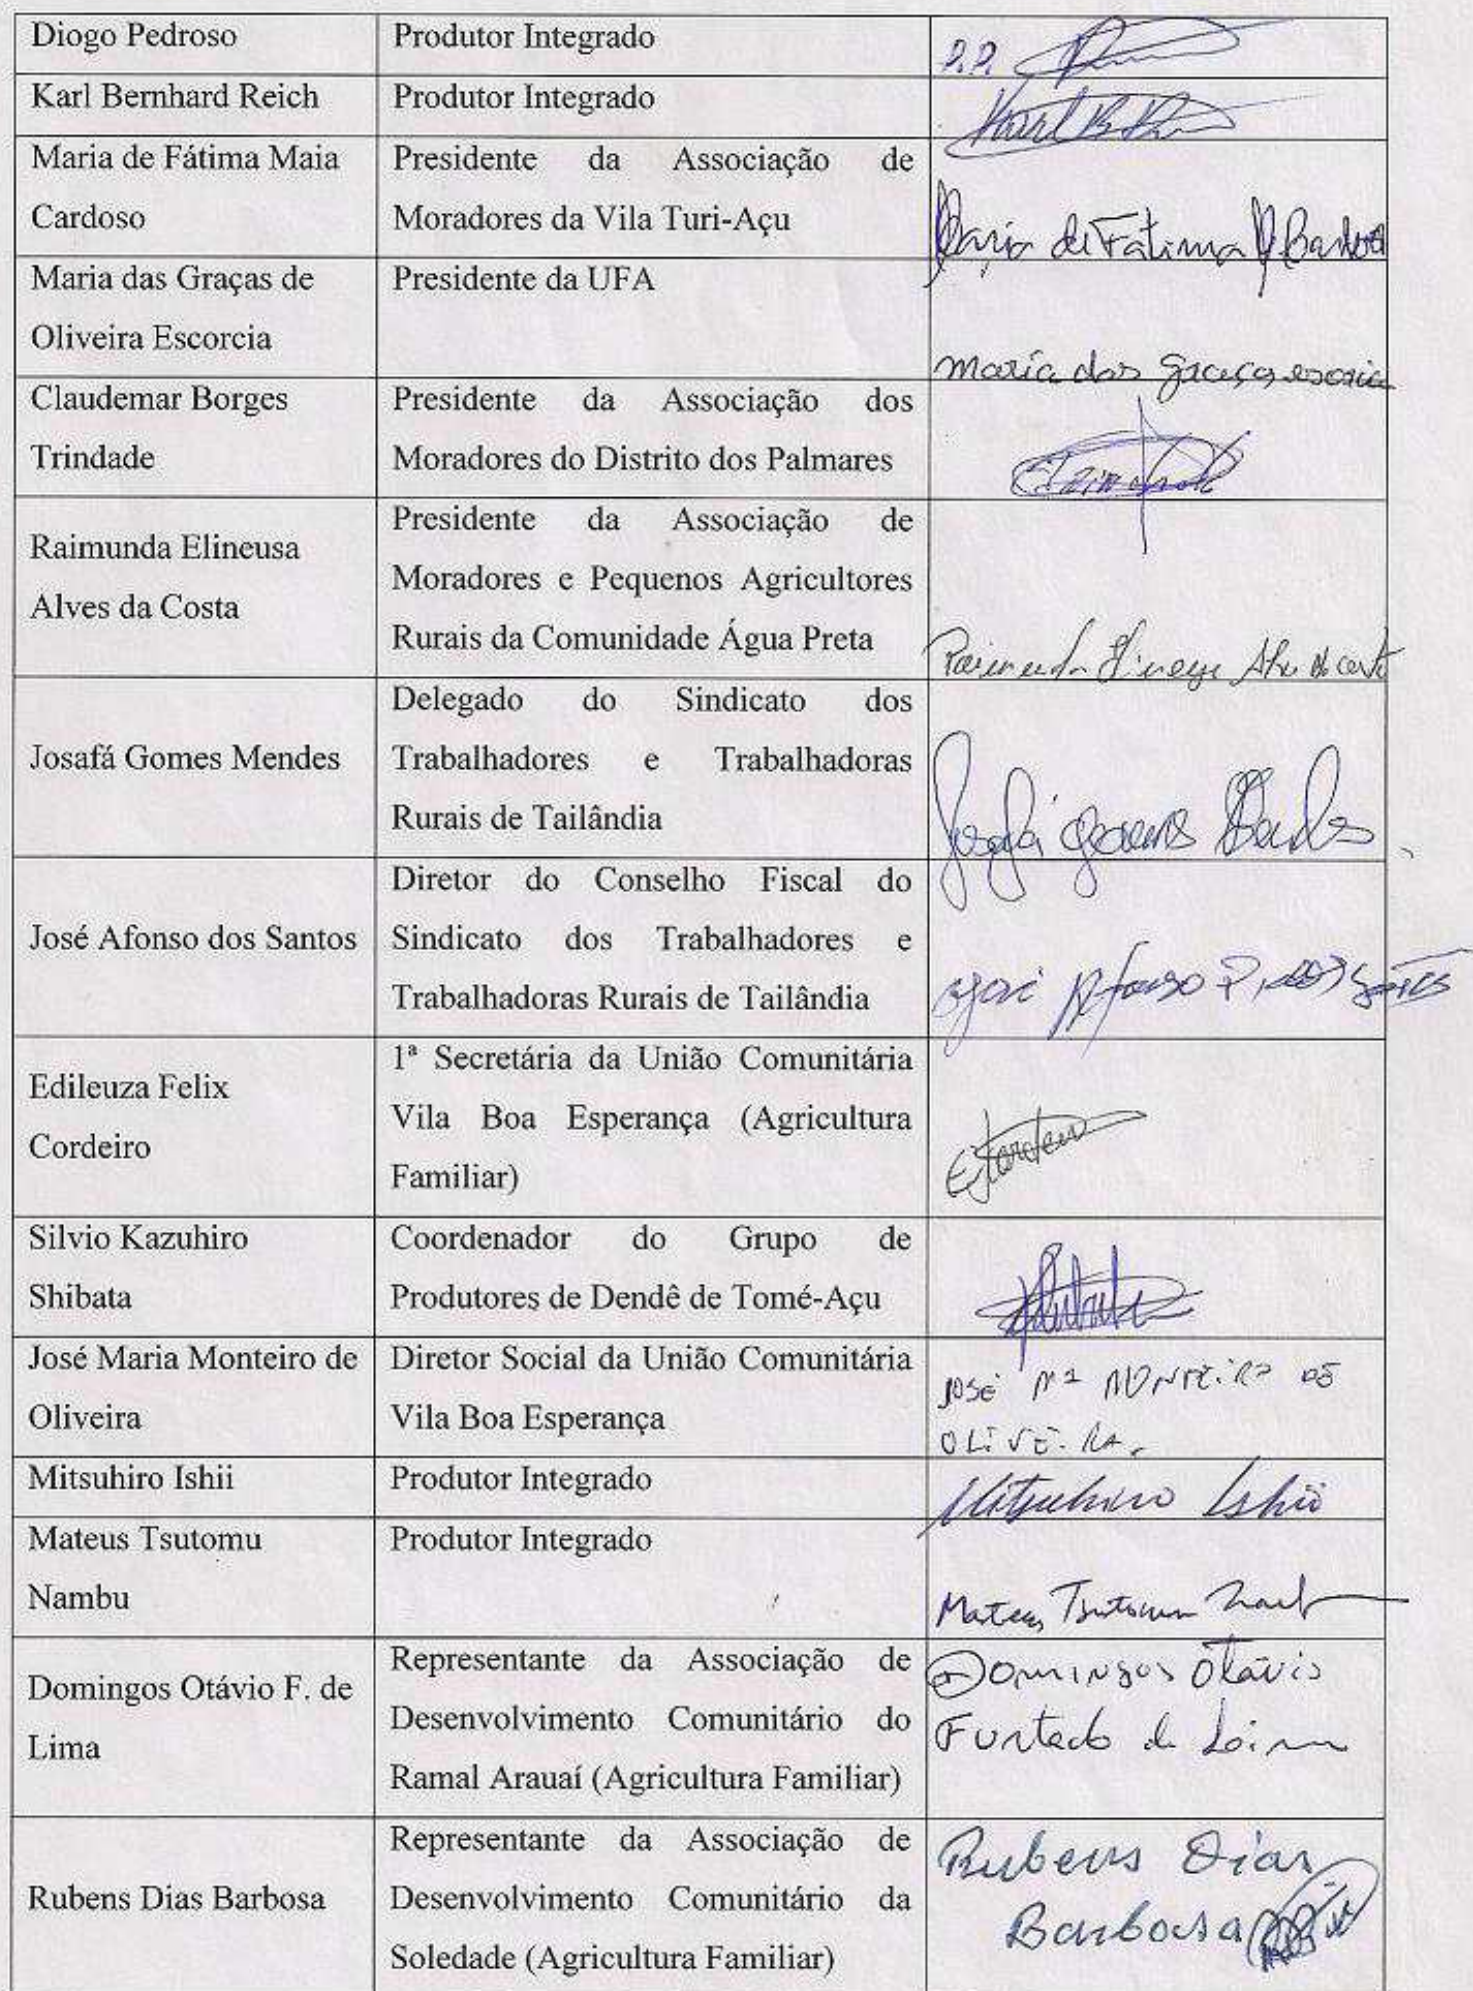 Diogo Pedroso
Produtor Integrado
P.P.
Karl Bernhard Reich
Produtor Integrado
Karl B.
Maria de Fátima Maia
Cardoso
Presidente da Associação de
Moradores da Vila Turi-Açu
Maria de Fatima M Cardoso
Maria das Graças de
Oliveira Escorcia
Presidente da UFA
maria das graças escorcia
Claudemar Borges
Trindade
Presidente da Associação dos
Moradores do Distrito dos Palmares
Raimunda Elineusa
Alves da Costa
Presidente da Associação de
Moradores e Pequenos Agricultores
Rurais da Comunidade Água Preta
Raimunda
Josafá Gomes Mendes
Delegado do Sindicato dos
Trabalhadores e Trabalhadoras
Rurais de Tailândia
Josafá Gomes Mendes
José Afonso dos Santos
Diretor do Conselho Fiscal do
Sindicato dos Trabalhadores e
Trabalhadoras Rurais de Tailândia
José Afonso dos Santos
Edileuza Felix
Cordeiro
1ª Secretária da União Comunitária
Vila Boa Esperança (Agricultura
Familiar)
Silvio Kazuhiro
Shibata
Coordenador do Grupo de
Produtores de Dendê de Tomé-Açu
José Maria Monteiro de
Oliveira
Diretor Social da União Comunitária
Vila Boa Esperança
JOSÉ Mª MONTEIRO DE
OLIVEIRA.
Mitsuhiro Ishii
Produtor Integrado
Mitsuhiro Ishii
Mateus Tsutomu
Nambu
Produtor Integrado
Mateus Tsutomu
Domingos Otávio F. de
Lima
Representante da Associação de
Desenvolvimento Comunitário do
Ramal Arauaí (Agricultura Familiar)
Domingos Otávio
Furtado de Lima
Rubens Dias Barbosa
Representante da Associação de
Desenvolvimento Comunitário da
Soledade (Agricultura Familiar)
Rubens Dias
Barbosa